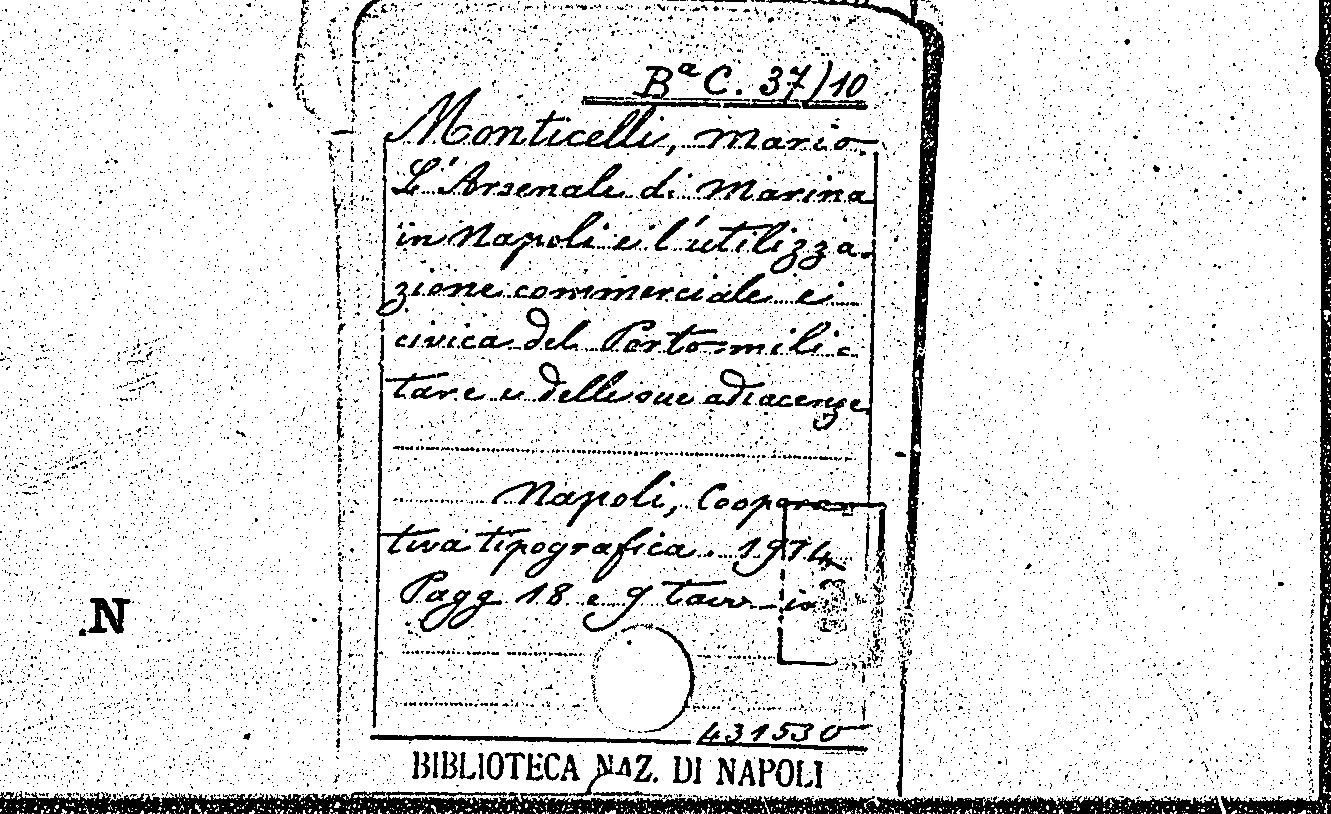 Bª C. 37/10
Monticelli, Mario.
L'Arsenale di Marina
in Napoli e l'utilizza-
zione commerciale e
civica del Porto mili-
tare e delle sue adiacenze
Napoli, Coopera-
tiva tipografica. 1914
Pagg 18 e 9 tavv. in
.N
431530
BIBLIOTECA NAZ. DI NAPOLI